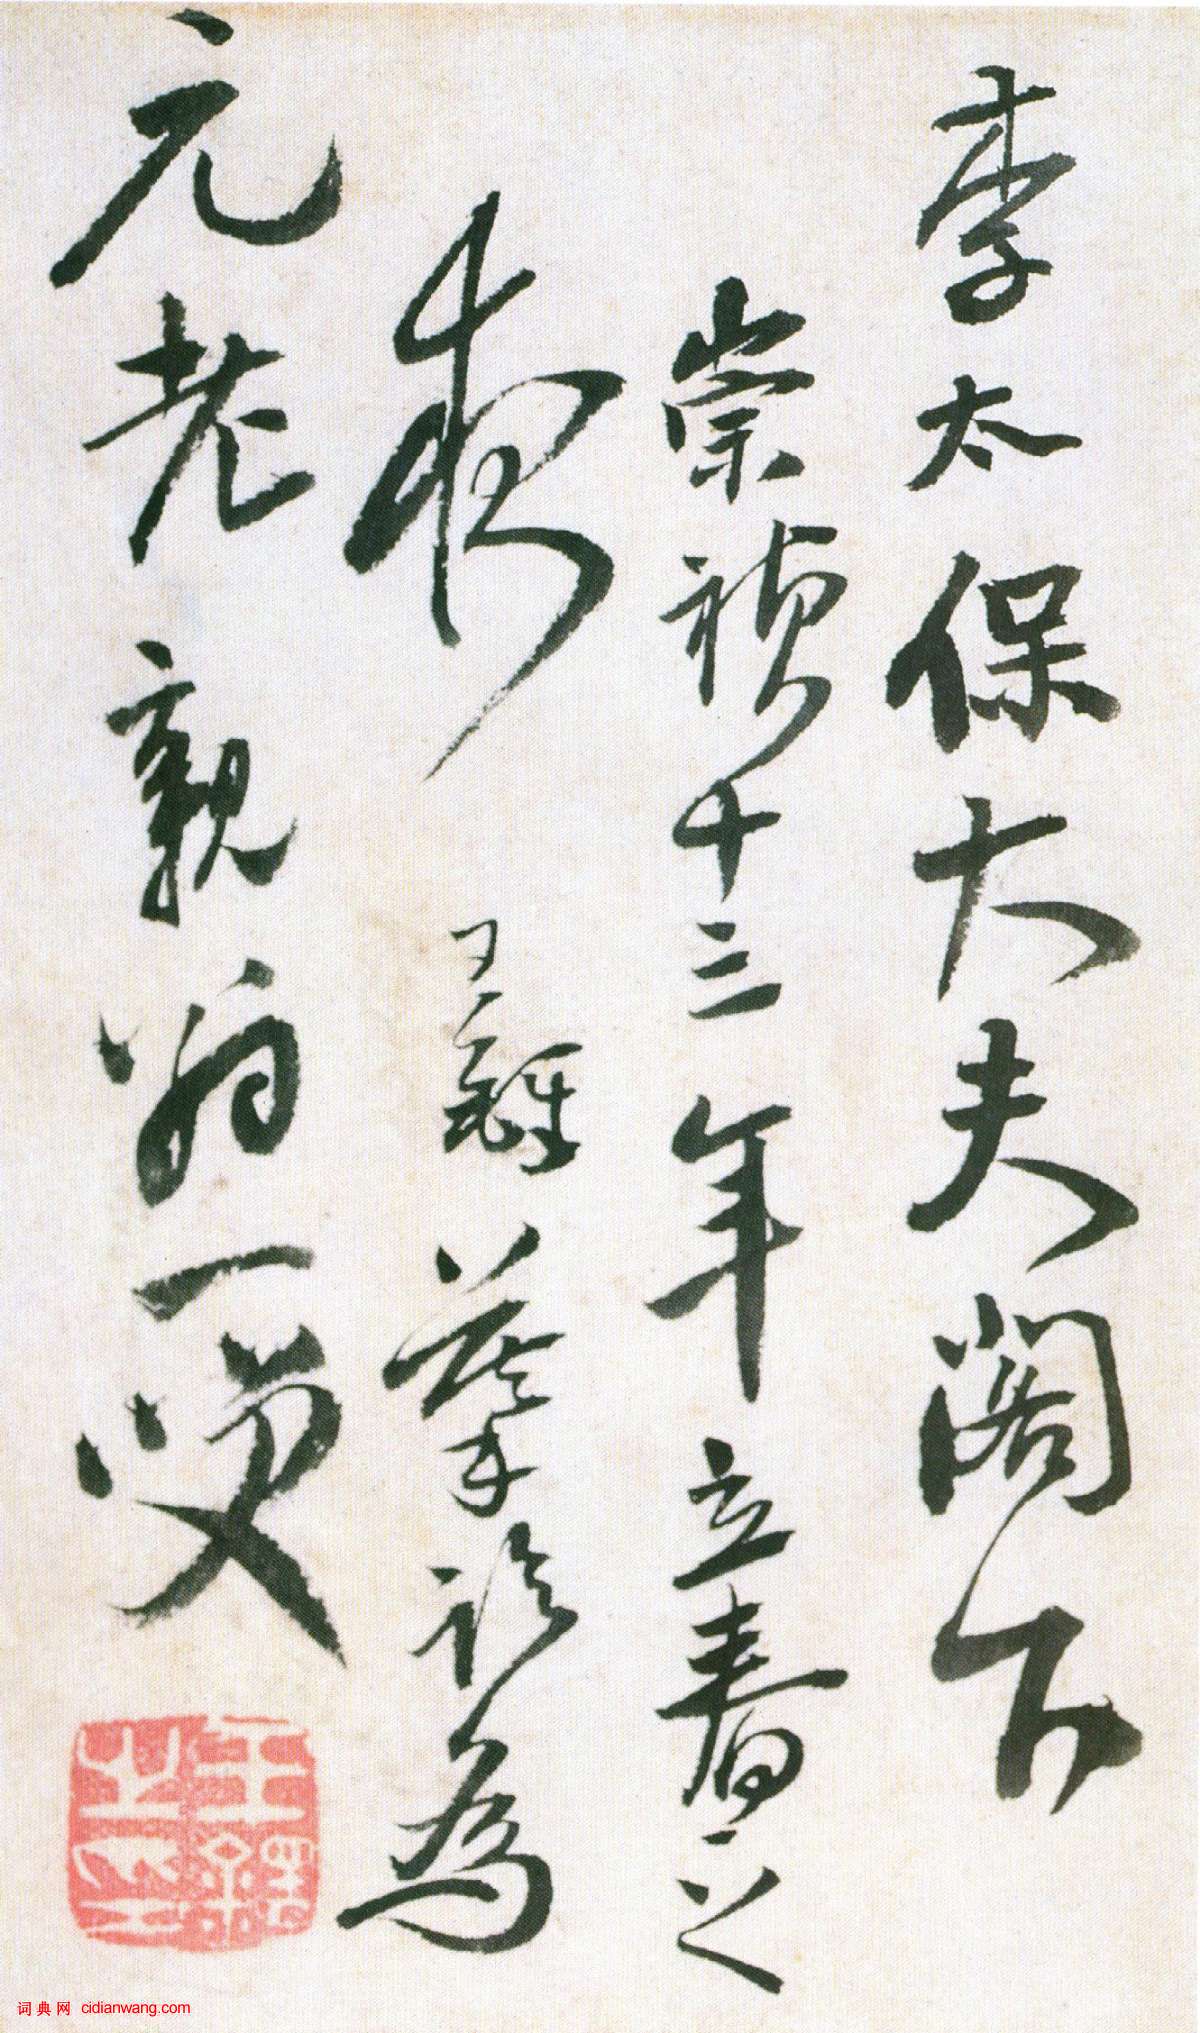 李太保大夫閣下
崇禎十三年立春之
夜 為
元老親翁一咲
王鐸之印
词典网 cidianwang.com